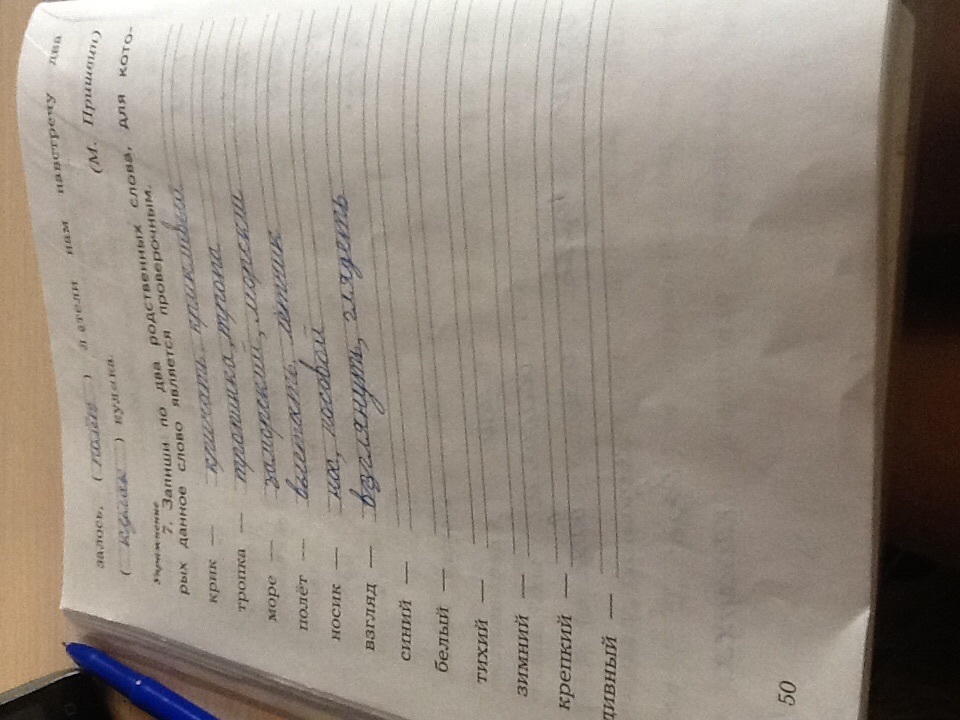 залось, (полёт) л етели нам навстречу два
(кулик) кулика. (М. Пришвин)
Упражнение
7. Запиши по два родственных слова, для кото-
рых данное слово является проверочным.
крик — кричать,
тропка — тропинка, тропа
море — заморский, морской
полёт — вылететь, лётчик
носик — нос, носовой
взгляд — взглянуть, глядеть
синий —
белый —
тихий —
зимний —
крепкий —
дивный —
50